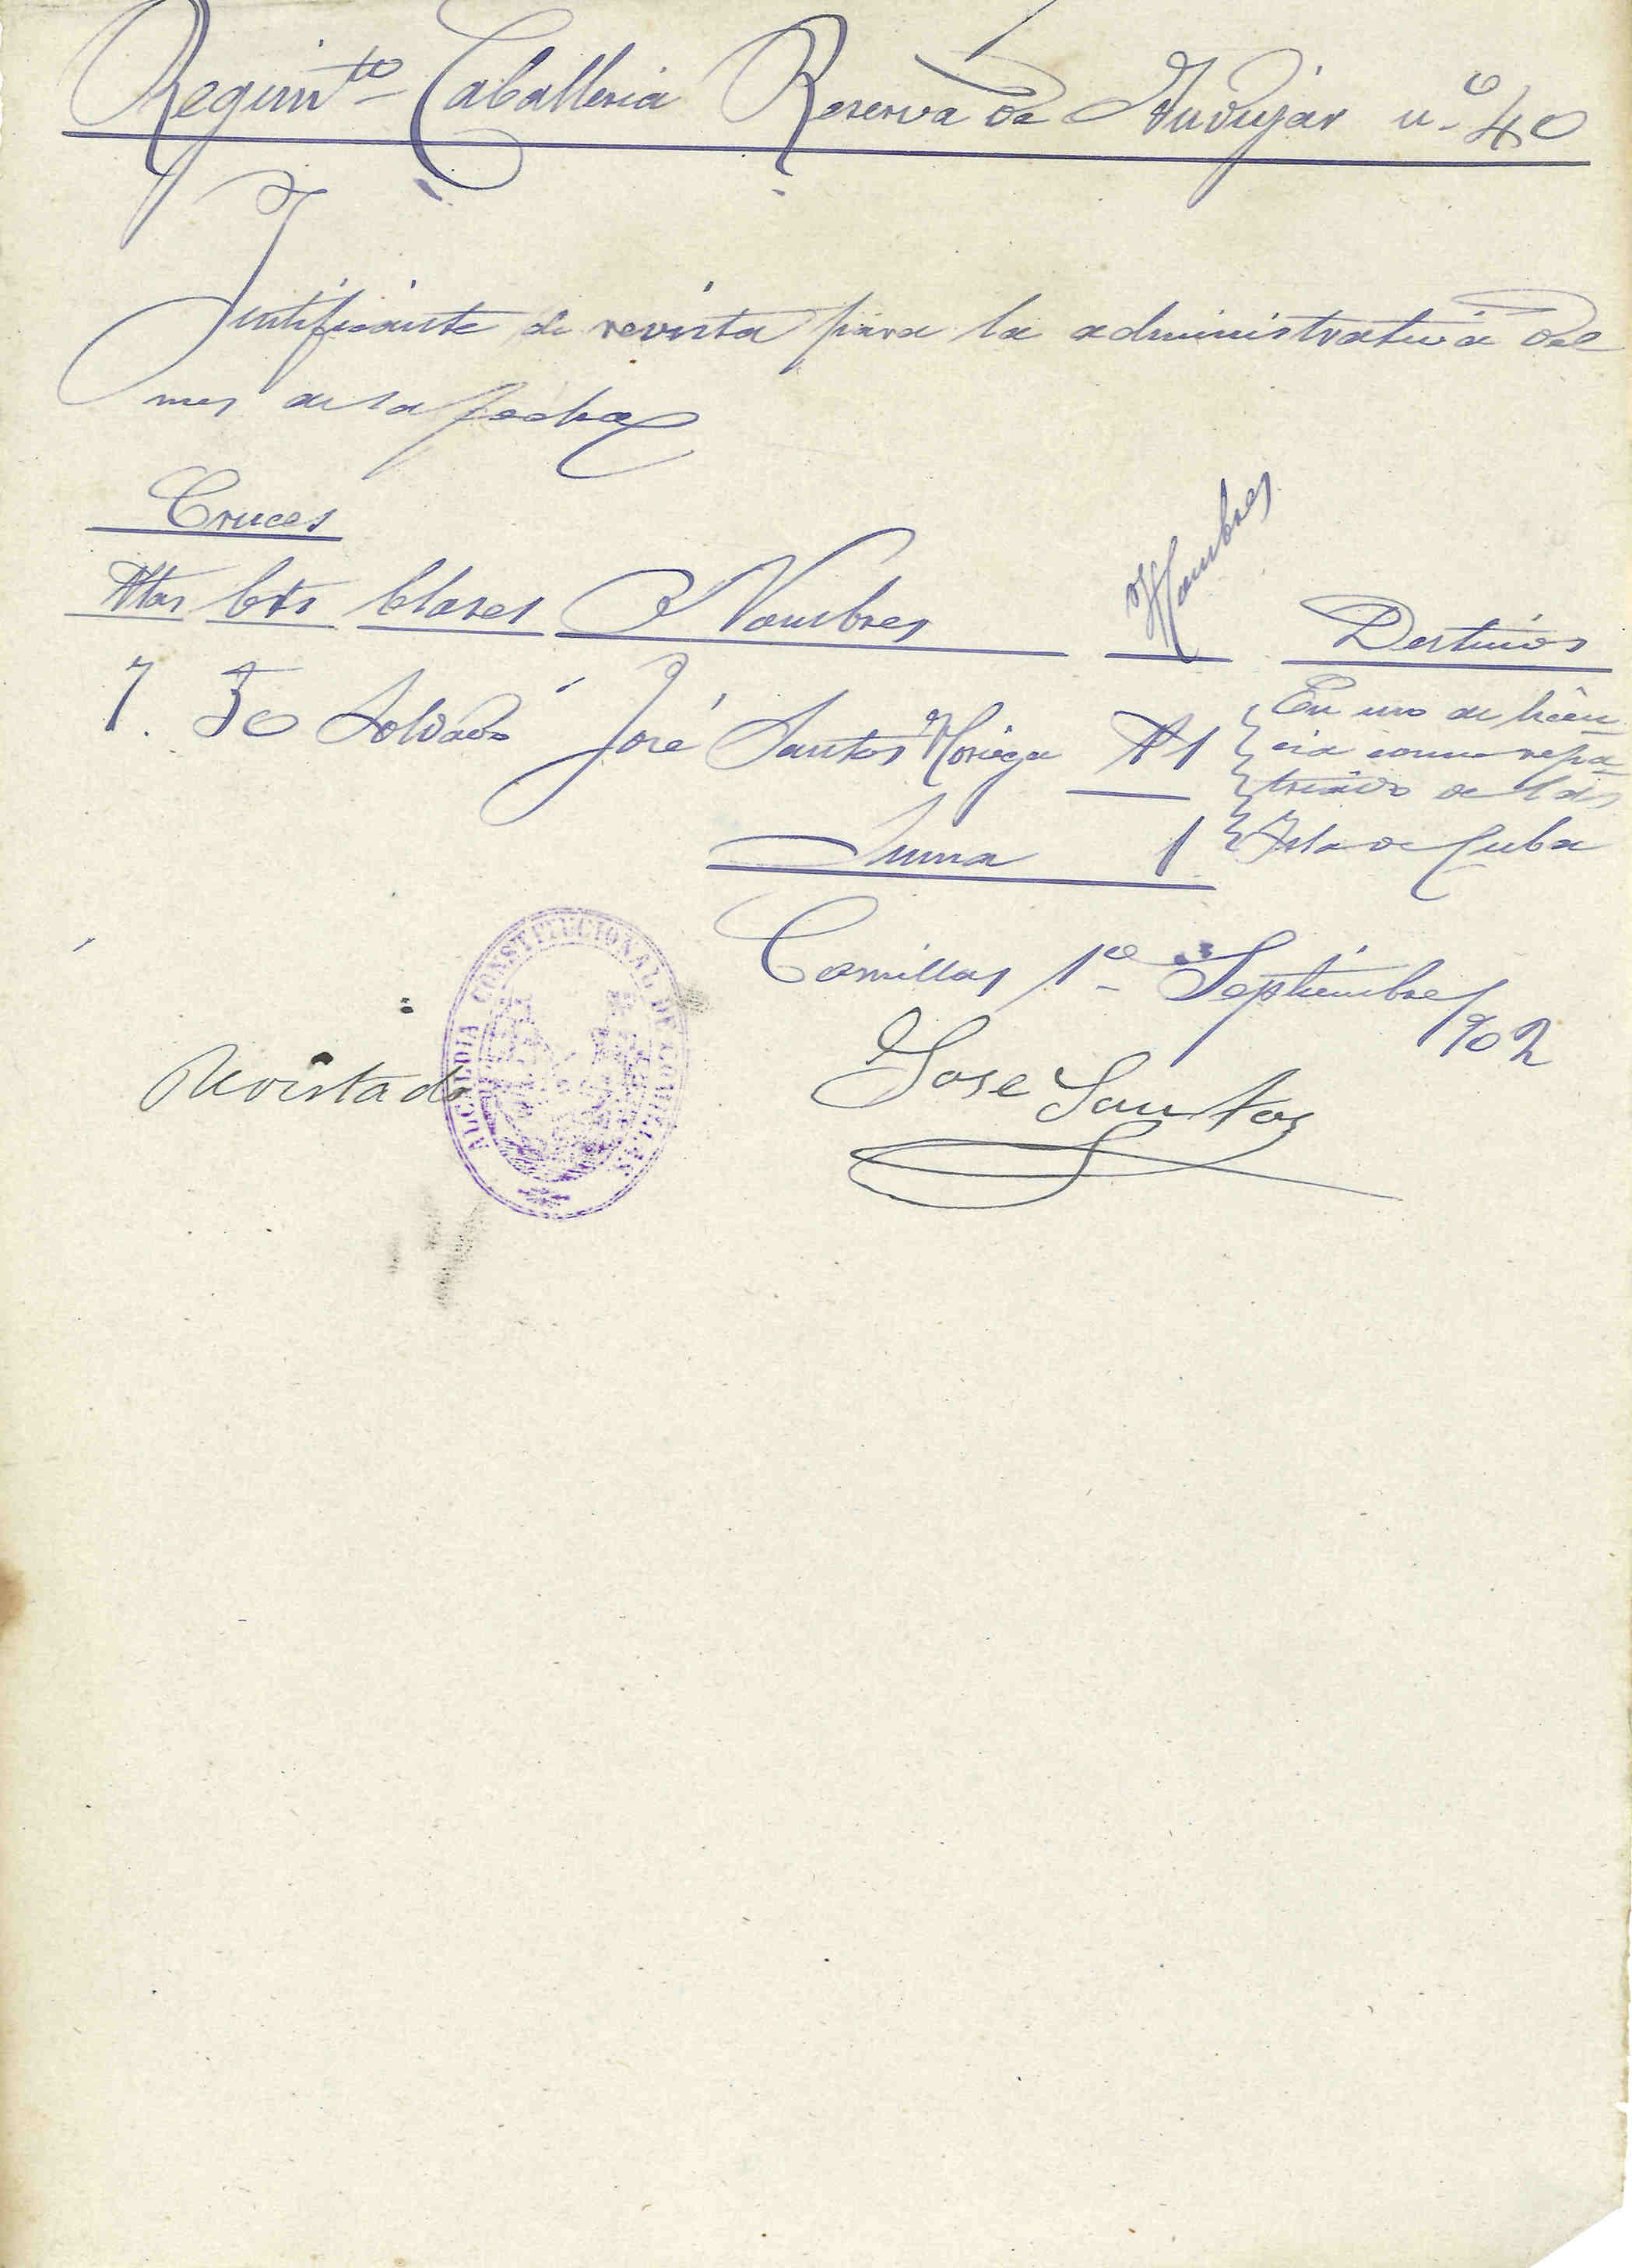 Regimto Caballeria Reserva de Andujar nº 40
Justificante de revista para la administrativa del
mes de la fecha
Cruces
Ptas Cts Clases Nombres Hombres Destinos
7. 50 Soldado José Santos Noriega P 1 En uso de licen
cia como repa
triado de la
Suma 1 Isla de Cuba
Comillas 1º Septiembre
902
Revistado
Jose Santos
ALCALDIA CONSTITUCIONAL DE COMILLAS